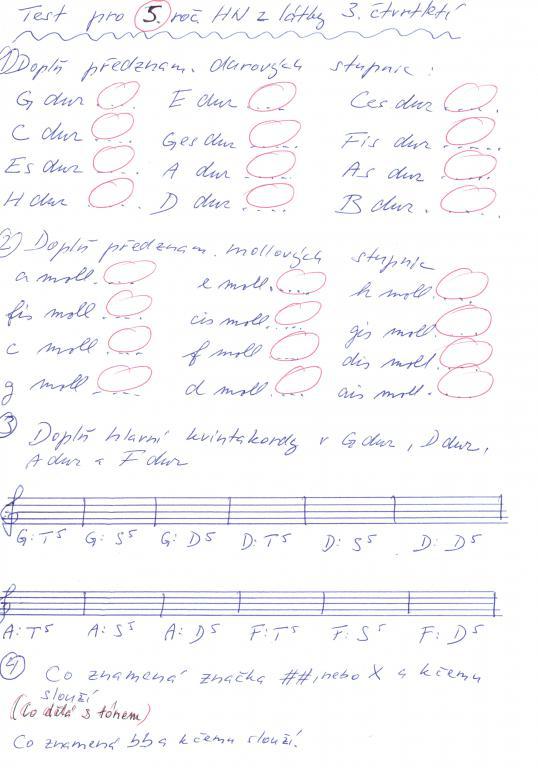 Test pro 5. roč HN z látky 3. čtvrtletí
1) Doplň předznam. durových stupnic:
G dur .... E dur .... Ces dur ....
C dur .... Ges dur .... Fis dur ....
Es dur .... A dur .... As dur ....
H dur .... D dur .... B dur ....
2) Doplň předznam. mollových stupnic
a moll .... e moll .... h moll ....
fis moll .... cis moll .... gis moll ....
c moll .... f moll .... dis moll ....
g moll .... d moll .... ais moll ....
3 Doplň hlavní kvintakordy v G dur, D dur,
A dur a F dur
G: T5 G: S5 G: D5 D: T5 D: S5 D: D5
A: T5 A: S5 A: D5 F: T5 F: S5 F: D5
4 Co znamená značka ##, nebo X a k čemu
slouží
(Co dělá s tónem)
Co znamená bb a k čemu slouží.